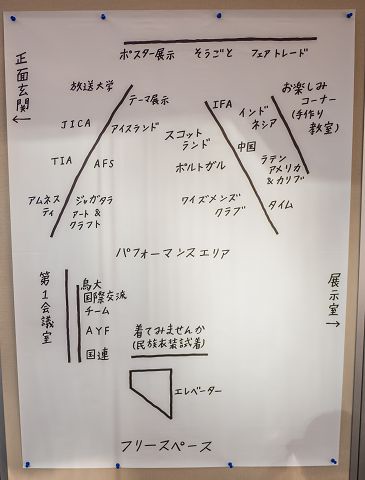 ポスター展示 そうごと フェアトレード
正面玄関
←
放送大学
テーマ展示
JICA
アイスランド
TIA
AFS
アムネス
ティ
ジャガタラ
アート&
クラフト
IFA
スコット
ランド
ポルトガル
ワイズメンズ
クラブ
インド
ネシア
中国
ラテン
アメリカ
&カリブ
タイム
お楽しみ
コーナー
(手作り
教室)
パフォーマンスエリア
第1会議室
鳥大
国際交流
チーム
AYF
国連
着てみませんか
(民族衣装試着)
展示室
→
エレベーター
フリースペース